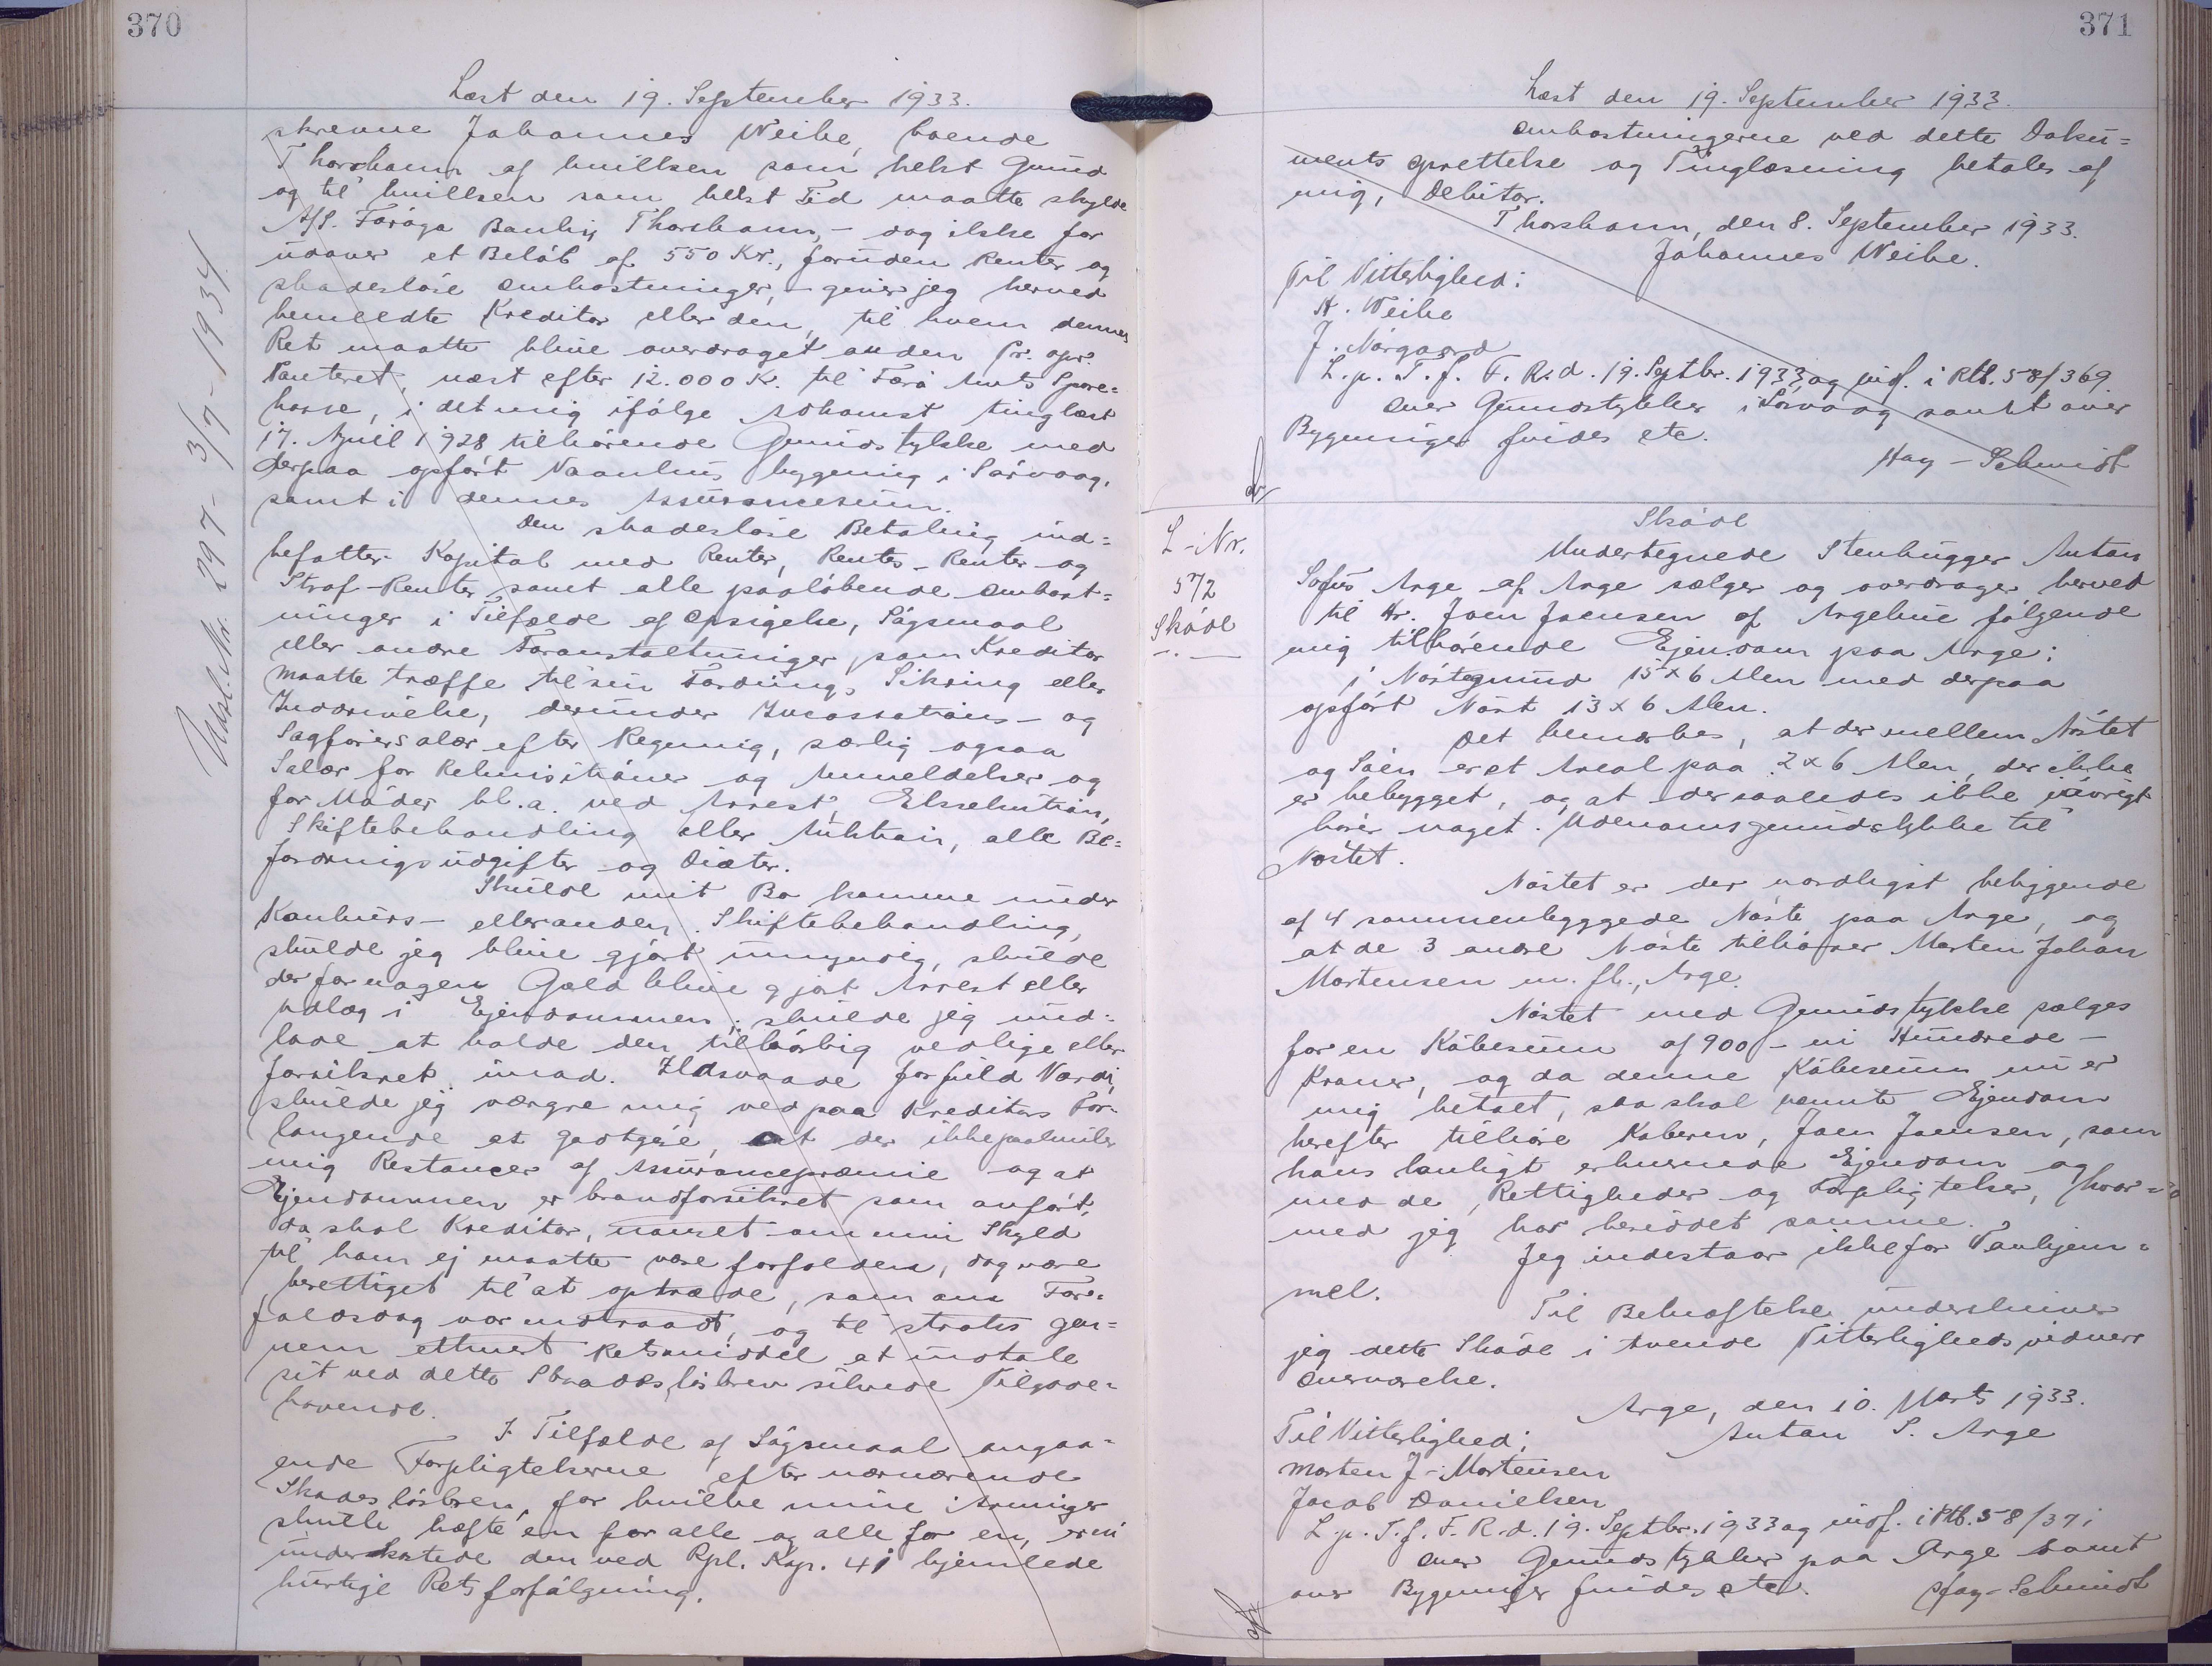 370
Læst den 19. September 1933.
skrevne Johannes Weihe, boende
Thorshavn af hvilken som helst Grund
og til hvilken som helst Tid maatte skylde
A/S. Føroya Banki, Thorshavn, - dog ikke for
udover et Beløb af 550 Kr., foruden Renter og
skadesløse Omkostninger, - giver jeg herved
bemeldte Kreditor eller den, til hvem dennes
Ret maatte blive overdraget anden Pr. opr.
Panteret, næst efter 12.000 Kr. til Færø Amts Spare=
kasse, i det mig ifølge Adkomst tinglæst
17. April 1928 tilhørende Grundstykke med
derpaa opført Vaanhus bygning i Sørvaag,
samt i dennes Assurancesum.
Den skadesløse Betaling ind=
befatter Kapital med Renter, Rentes-Renter og
Straf-Renter samt alle paaløbende Omkost=
ninger i Tilfælde af Opsigelse, Søgsmaal
eller andre Foranstaltninger, som Kreditor
maatte træffe til sin Fordrings Sikring eller
Inddrivelse, derunder Incassations- og
Sagførersalær efter Regning, særlig ogsaa
Salær for Rekvisitioner og Anmeldelser og
for Møder bl. a. ved Arrest, Eksekution,
Skiftebehandling eller Auktion, alle Be=
fordringsudgifter og Diæter.
Skulde mit Bo komme under
Konkurs- eller anden Skiftebehandling,
skulde jeg blive gjort umyndig, skulde
der for nogen Gæld blive gjort Arrest eller
Udlæg i Ejendommen, skulde jeg und=
lade at holde den tilbørlig vedlige eller
forsikret imod Ildsvaade for fuld Værdi,
skulde jeg vægre mig ved paa Kreditors For=
langende at godtgøre, at der ikke paahviler
mig Restancer af Assurancepræmie og at
Ejendommen er brandforsikret som anført,
da skal Kreditor, uanset om min Skyld
til ham ej maatte være forfalden, dog være
berettiget til at optræde, som om For=
faldsdag var indtraadt, og til straks gen=
nem ethvert Retsmiddel at indtale
sit ved dette Skadesløsbrev sikrede Tilgode=
havende.
I Tilfælde af Søgsmaal angaa=
ende Forpligtelserne efter nærværende
Skadesløsbrev, for hvilke mine Arvinger
skulle hæfte en for alle og alle for en, er vi
underkastede den ved Rpl. Kap. 41 hjemlede
hurtige Retsforfølgning.
Udsl. Nr. 297 - 3/7 - 1934.
371
Læst den 19. September 1933.
Omkostningerne ved dette Doku=
ments oprettelse og Tinglæsning betales af
mig, Debitor.
Thorshavn, den 8. September 1933.
Johannes Weihe.
Til Vitterlighed:
H. Weihe
J. Nørgaard
L. p. T. f. F. R. d. 19. Septbr. 1933 og indf. i Ptb. 58/369
Over Grundstykker i Sørvaag samt over
Bygninger findes etc.
Hay-Schmidt
L-Nr.
572
Skøde
Skøde
Undertegnede Stenhugger Anton
Sofus Arge af Arge sælger og overdrager herved
til Hr. Joen Joensen af Argehue følgende
mig tilhørende Ejendom paa Arge:
1 Nøstegrund 15 x 6 Alen med derpaa
opført Nøst 13 x 6 Alen.
Det bemærkes, at der mellem Nøstet
og Søen er et Areal paa 2 x 6 Alen, der ikke
er bebygget, og at der saaledes ikke iøvrigt
hører noget Udenomsgrundstykke til
Nøstet.
Nøstet er der nordligst beliggende
af 4 sammenbyggede Nøste paa Arge, og
at de 3 andre Nøste tilhører Morten Johan
Mortensen m. fl., Arge.
Nøstet med Grundstykke sælges
for en Købesum af 900 - ni Hundrede -
Kroner, og da denne Købesum nu er
mig betalt, saa skal nævnte Ejendom
herefter tilhøre Køberen, Joen Joensen, som
hans lovligt erhvervede Ejendom og
med de Rettigheder og Forpligtelser, hvor=
med jeg har besiddet samme.
Jeg indestaar ikke for Vanhjem=
mel.
Til Bekræftelse underskriver
jeg dette Skøde i tvende Vitterlighedsvidners
Overværelse.
Arge, den 10. Marts 1933.
Anton S. Arge
Til Vitterlighed:
Morten J. Mortensen
Jacob Danielsen
L. p. T. f. F. R. d. 19. Septbr. 1933 og indf. i Ptb. 58/371
Over Grundstykker paa Arge samt
over Bygninger findes etc.
Hay-Schmidt